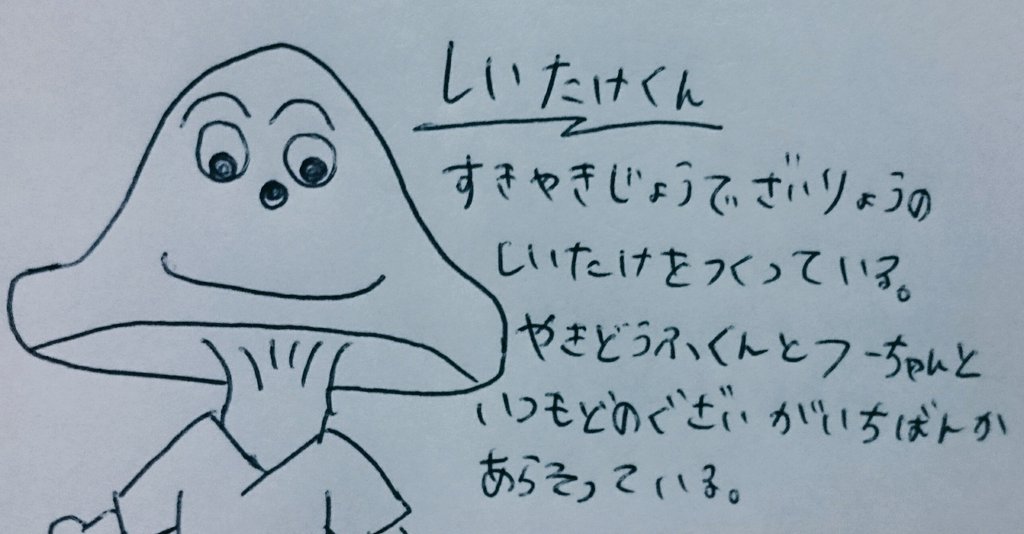 しいたけくん
すきやきじょうでざいりょうの
しいたけをつくっている。
やきどうふくんとフーちゃんと
いつもどのぐざいがいちばんか
あらそっている。